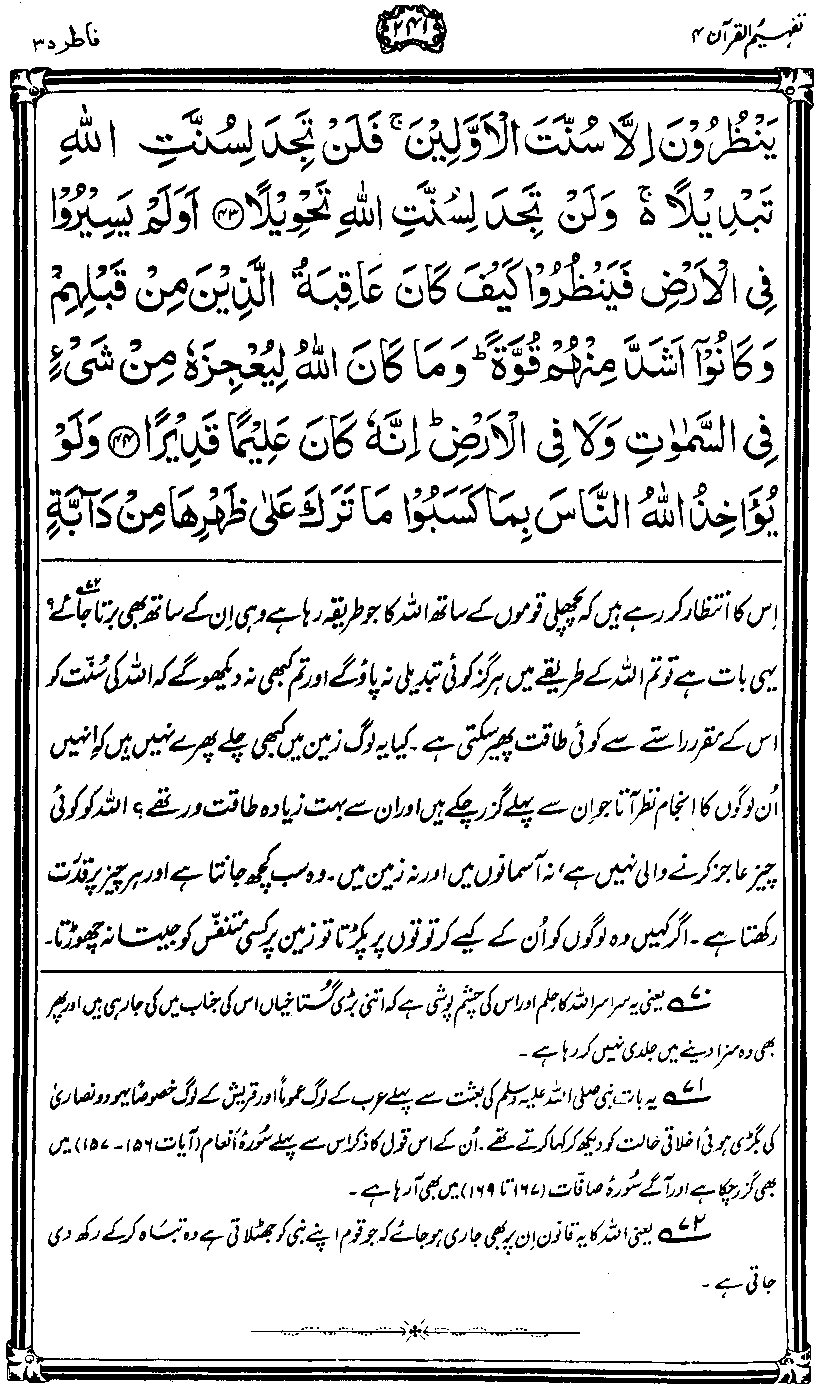 تفہیم القرآن ۴
۲۴۱
فاطر ۳۵
يَنْظُرُوْنَ اِلَّا سُنَّتَ الْاَوَّلِيْنَ ۚ فَلَنْ تَجِدَ لِسُنَّتِ اللّٰهِ
تَبْدِيْلًا ۚ۬ وَلَنْ تَجِدَ لِسُنَّتِ اللّٰهِ تَحْوِيْلًا ﴿۴۳﴾ اَوَلَمْ يَسِيْرُوْا
فِي الْاَرْضِ فَيَنْظُرُوْا كَيْفَ كَانَ عَاقِبَةُ الَّذِيْنَ مِنْ قَبْلِهِمْ
وَكَانُوْۤا اَشَدَّ مِنْهُمْ قُوَّةً ؕ وَمَا كَانَ اللّٰهُ لِيُعْجِزَهٗ مِنْ شَيْءٍ
فِي السَّمٰوٰتِ وَلَا فِي الْاَرْضِ ؕ اِنَّهٗ كَانَ عَلِيْمًا قَدِيْرًا ﴿۴۴﴾ وَلَوْ
يُؤَاخِذُ اللّٰهُ النَّاسَ بِمَا كَسَبُوْا مَا تَرَكَ عَلٰى ظَهْرِهَا مِنْ دَآبَّةٍ
اِس کا انتظار کر رہے ہیں کہ پچھلی قوموں کے ساتھ اللہ کا جو طریقہ رہا ہے وہی اِن کے ساتھ بھی برتا جائے۷۲؟
یہی بات ہے تو تم اللہ کے طریقے میں ہرگز کوئی تبدیلی نہ پاؤ گے اور تم کبھی نہ دیکھو گے کہ اللہ کی سُنّت کو
اس کے مقرر راستے سے کوئی طاقت پھیر سکتی ہے۔ کیا یہ لوگ زمین میں کبھی چلے پھرے نہیں ہیں کہ اِنہیں
اُن لوگوں کا انجام نظر آتا جو اِن سے پہلے گزر چکے ہیں اور ان سے بہت زیادہ طاقت ور تھے؟ اللہ کو کوئی
چیز عاجز کرنے والی نہیں ہے، نہ آسمانوں میں اور نہ زمین میں۔ وہ سب کچھ جانتا ہے اور ہر چیز پر قدرت
رکھتا ہے۔ اگر کہیں وہ لوگوں کو اُن کے کیے کرتوتوں پر پکڑتا تو زمین پر کسی متنفّس کو جیتا نہ چھوڑتا۔
۷۰ یعنی یہ سراسر اللہ کا حِلم اور اس کی چشم پوشی ہے کہ اتنی بڑی گستاخیاں اس کی جناب میں کی جا رہی ہیں اور پھر
بھی وہ سزا دینے میں جلدی نہیں کر رہا ہے۔
۷۱ یہ بات نبی صلی اللہ علیہ وسلم کی بعثت سے پہلے عرب کے لوگ عموماً اور قریش کے لوگ خصوصاً یہود و نصاریٰ
کی بگڑی ہوئی اخلاقی حالت کو دیکھ کر کہا کرتے تھے۔ اُن کے اس قول کا ذکر اس سے پہلے سُورۂ انعام (آیات ۱۵۶-۱۵۷) میں
بھی گزر چکا ہے اور آگے سُورۂ صافّات (۱۶۷ تا ۱۶۹) میں بھی آ رہا ہے۔
۷۲ یعنی اللہ کا یہ قانون اِن پر بھی جاری ہو جائے کہ جو قوم اپنے نبی کو جھٹلاتی ہے وہ تباہ کرکے رکھ دی
جاتی ہے۔